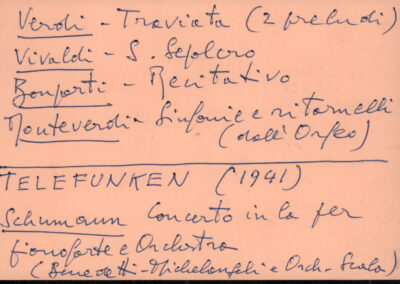 Verdi - Traviata (2 preludi)
Vivaldi - S. Sepolcro
Bonporti - Recitativo
Monteverdi - Sinfonie e ritornelli
(dall'Orfeo)
TELEFUNKEN (1941)
Schumann Concerto in la per
pianoforte e Orchestra
(Benedetti-Michelangeli e Orch. Scala)